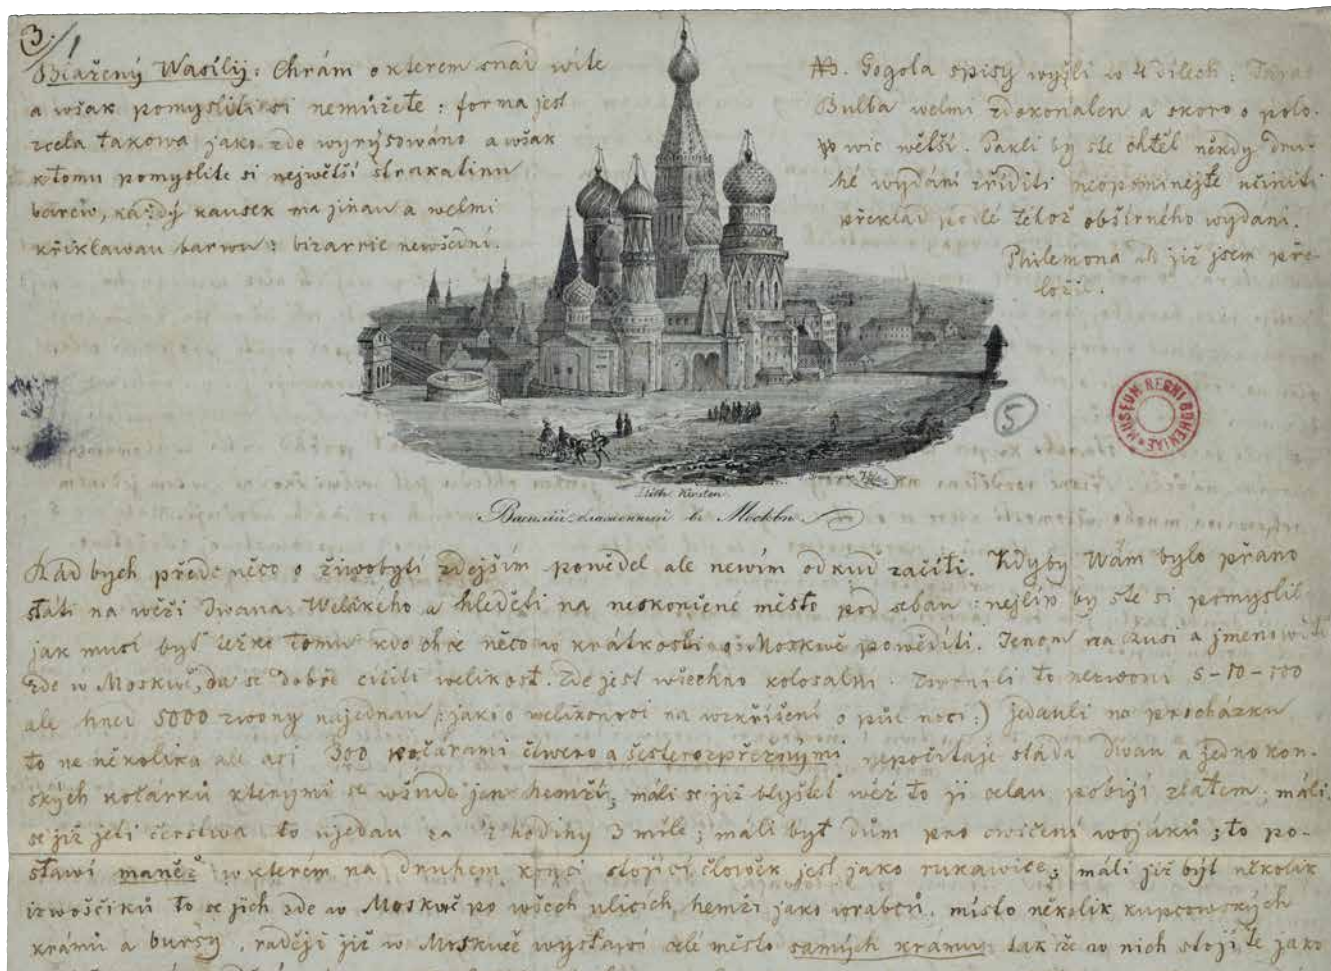 3./1
Blažený Wasílij: Chrám o kterem snaď wíte
a wšak pomysliti si nemůžete: forma jest
zcela takowa jako zde wyrýsowáno a wšak
k tomu pomyslite si největší strakatinu
barew, každý kausek ma jinau a welmi
křiklawau barwu: bizarrie newšední.
NB. Gogola spisy wyšli w 4 dílech: Taras
Bulba welmi zdokonalen a skoro o polo-
wic wětší. Pakli by ste chtěl někdy dru-
hé wydání zříditi neopominejte učiniti
překlad podlé téhož obšírného wydání.
Philemona již jsem pře-
ložil.
5
MUSEUM REGNI BOHEMIAE
Lith. Kirsten.
Василій блаженный въ Москвѣ
Rád bych přede něco o žiwobytí zdejším powěděl ale newím odkud začíti. Kdyby Wám bylo přano
státi na wěži Iwana Welikého a hleděti na neskončené město pod sebau: nejlíp by ste si pomyslil
jak musí být težko tomu kdo chce něco w krátkosti o Moskwě powěditi. Jenom na Rusi a jmenowitě
zde w Moskwě, da se dobře cítiti welikost. Zde jest wšechno kolosalni. Zwoní li to nezwoni 5-10-100
ale hned 5000 zwony najednau (: jako o welikonoci na wzkříšení o půl noci :) jedauli na procházku
to ne několika ale asi 300 kočárami čtwero a šesterospřežnými nepočitaje stáda dwau a jedno kon-
ských kočárků kterými se wšude jen hemží; máli se již blyštět wěž to ji celau pobijí zlatem; máli
se již jeti čerstwa to ujedau za ½ hodiny 3 míle; máli být dům pro cwičení wojáků; to po-
stawí maněž w kterém na druhem konci stojící člowěk jest jako rukawice; máli již být několik
izwoščiků to se jich zde w Moskwě po wšech ulicích hemží jako wrabců. místo několik kupcowských
krámů a bursy, raději již w Moskwě wystawí celé město samých krámu tak že w nich stojí te jako